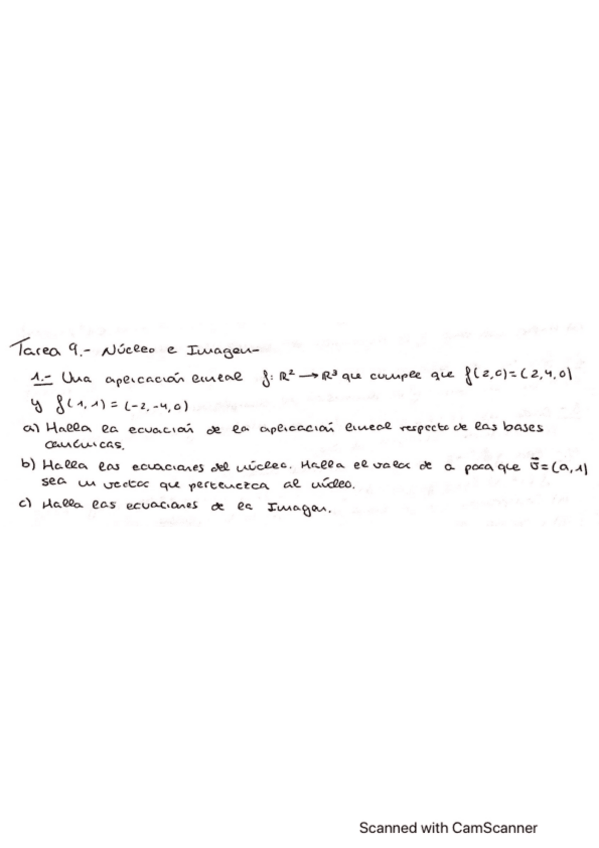 Tarea 9.- Núcleo e Imagen-
1.- Una aplicación lineal f: ℝ² → ℝ³ que cumple que f(2,0)=(2,4,0)
y f(1,1)=(-2,-4,0)
a) Halla la ecuación de la aplicación lineal respecto de las bases
canónicas.
b) Halla las ecuaciones del núcleo. Halla el valor de a para que v⃗=(a,1)
sea un vector que pertenezca al núcleo.
c) Halla las ecuaciones de la Imagen.
Scanned with CamScanner